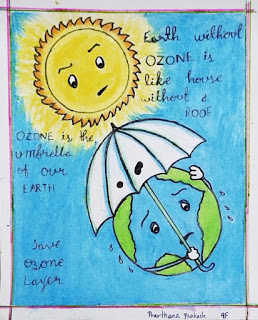 Earth without
OZONE is
like house
without a
ROOF
OZONE is the
umbrella
of our
EARTH
Save
Ozone
Layer
Prarthana Prakash 9F